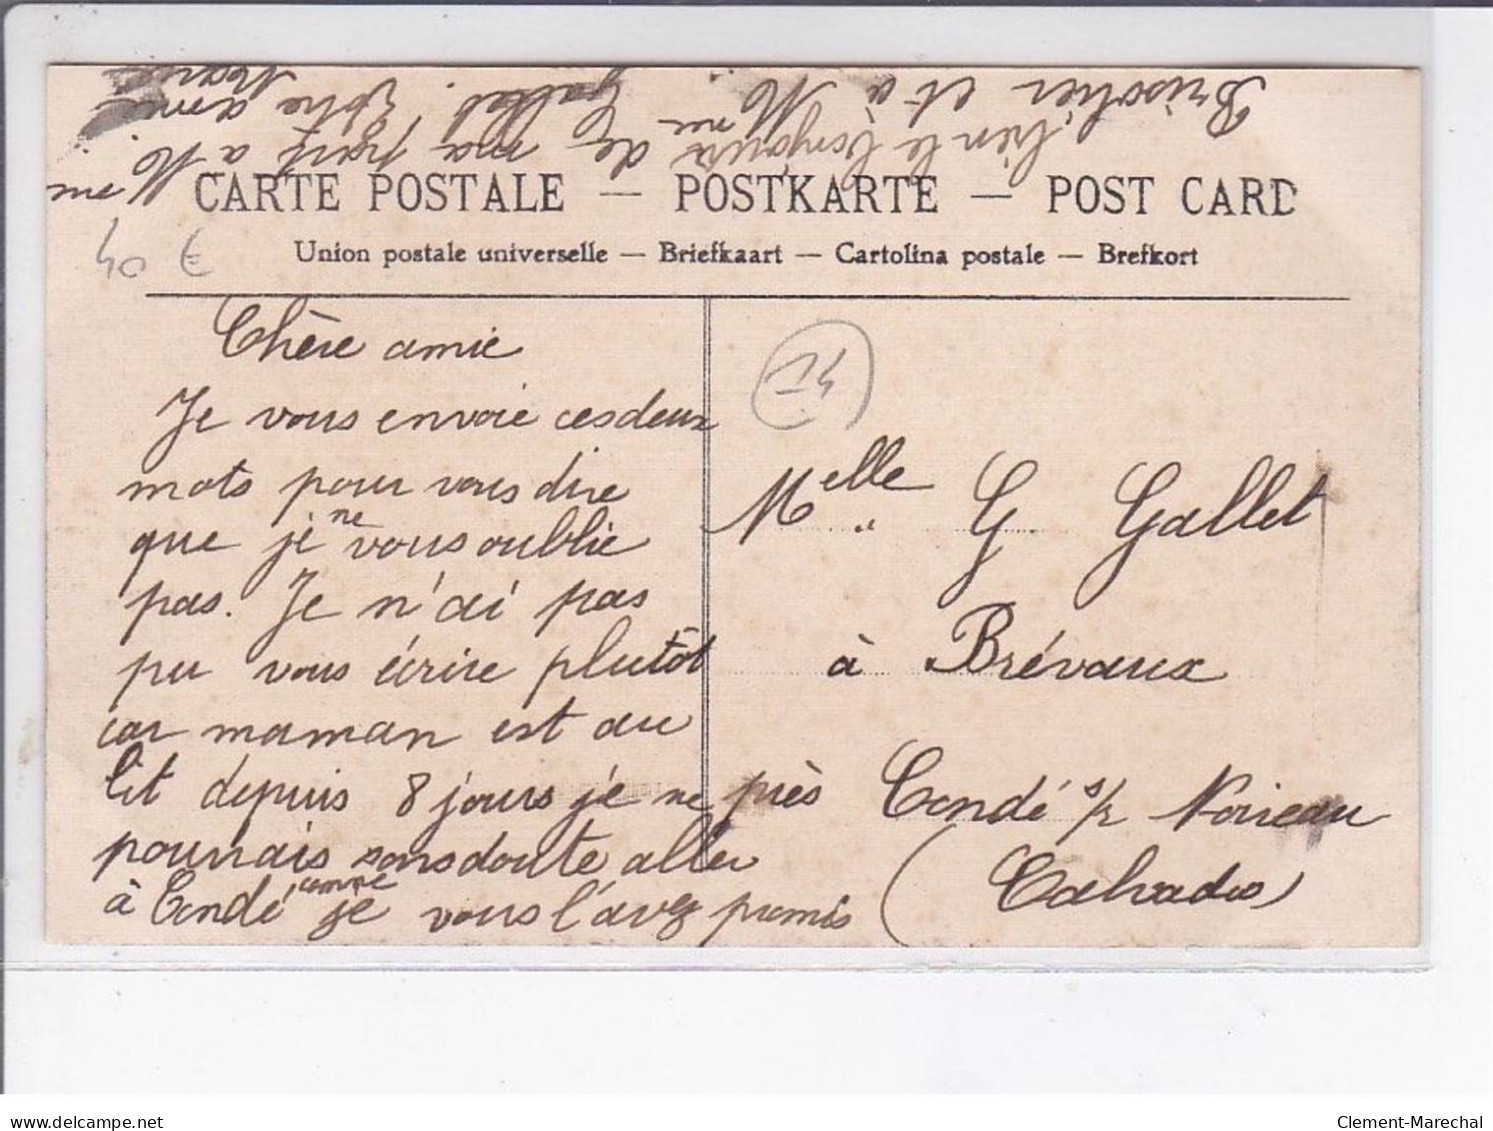 CARTE POSTALE — POSTKARTE — POST CARD
Union postale universelle — Briefkaart — Cartolina postale — Brefkort
Chère amie
Je vous envoie ces deux
mots pour vous dire
que je ne vous oublie
pas. Je n'ai pas
pu vous écrire plutôt
car maman est au
lit depuis 8 jours je ne
pourrais sans doute aller
à Condé comme je vous l'avez promis
bien le bonjour de ma part a M. me
Brisolier et à M. me Gallet. Votre amie
Marie
Melle G. Gallet
à Brévaux
près Condé s/r Noireau
(Calvados)
delcampe.net
Clement-Marechal